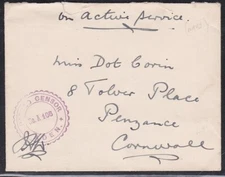 on Active Service.
Miss Dot Corin
8 Tolver Place
Penzance
Cornwall
CENSOR